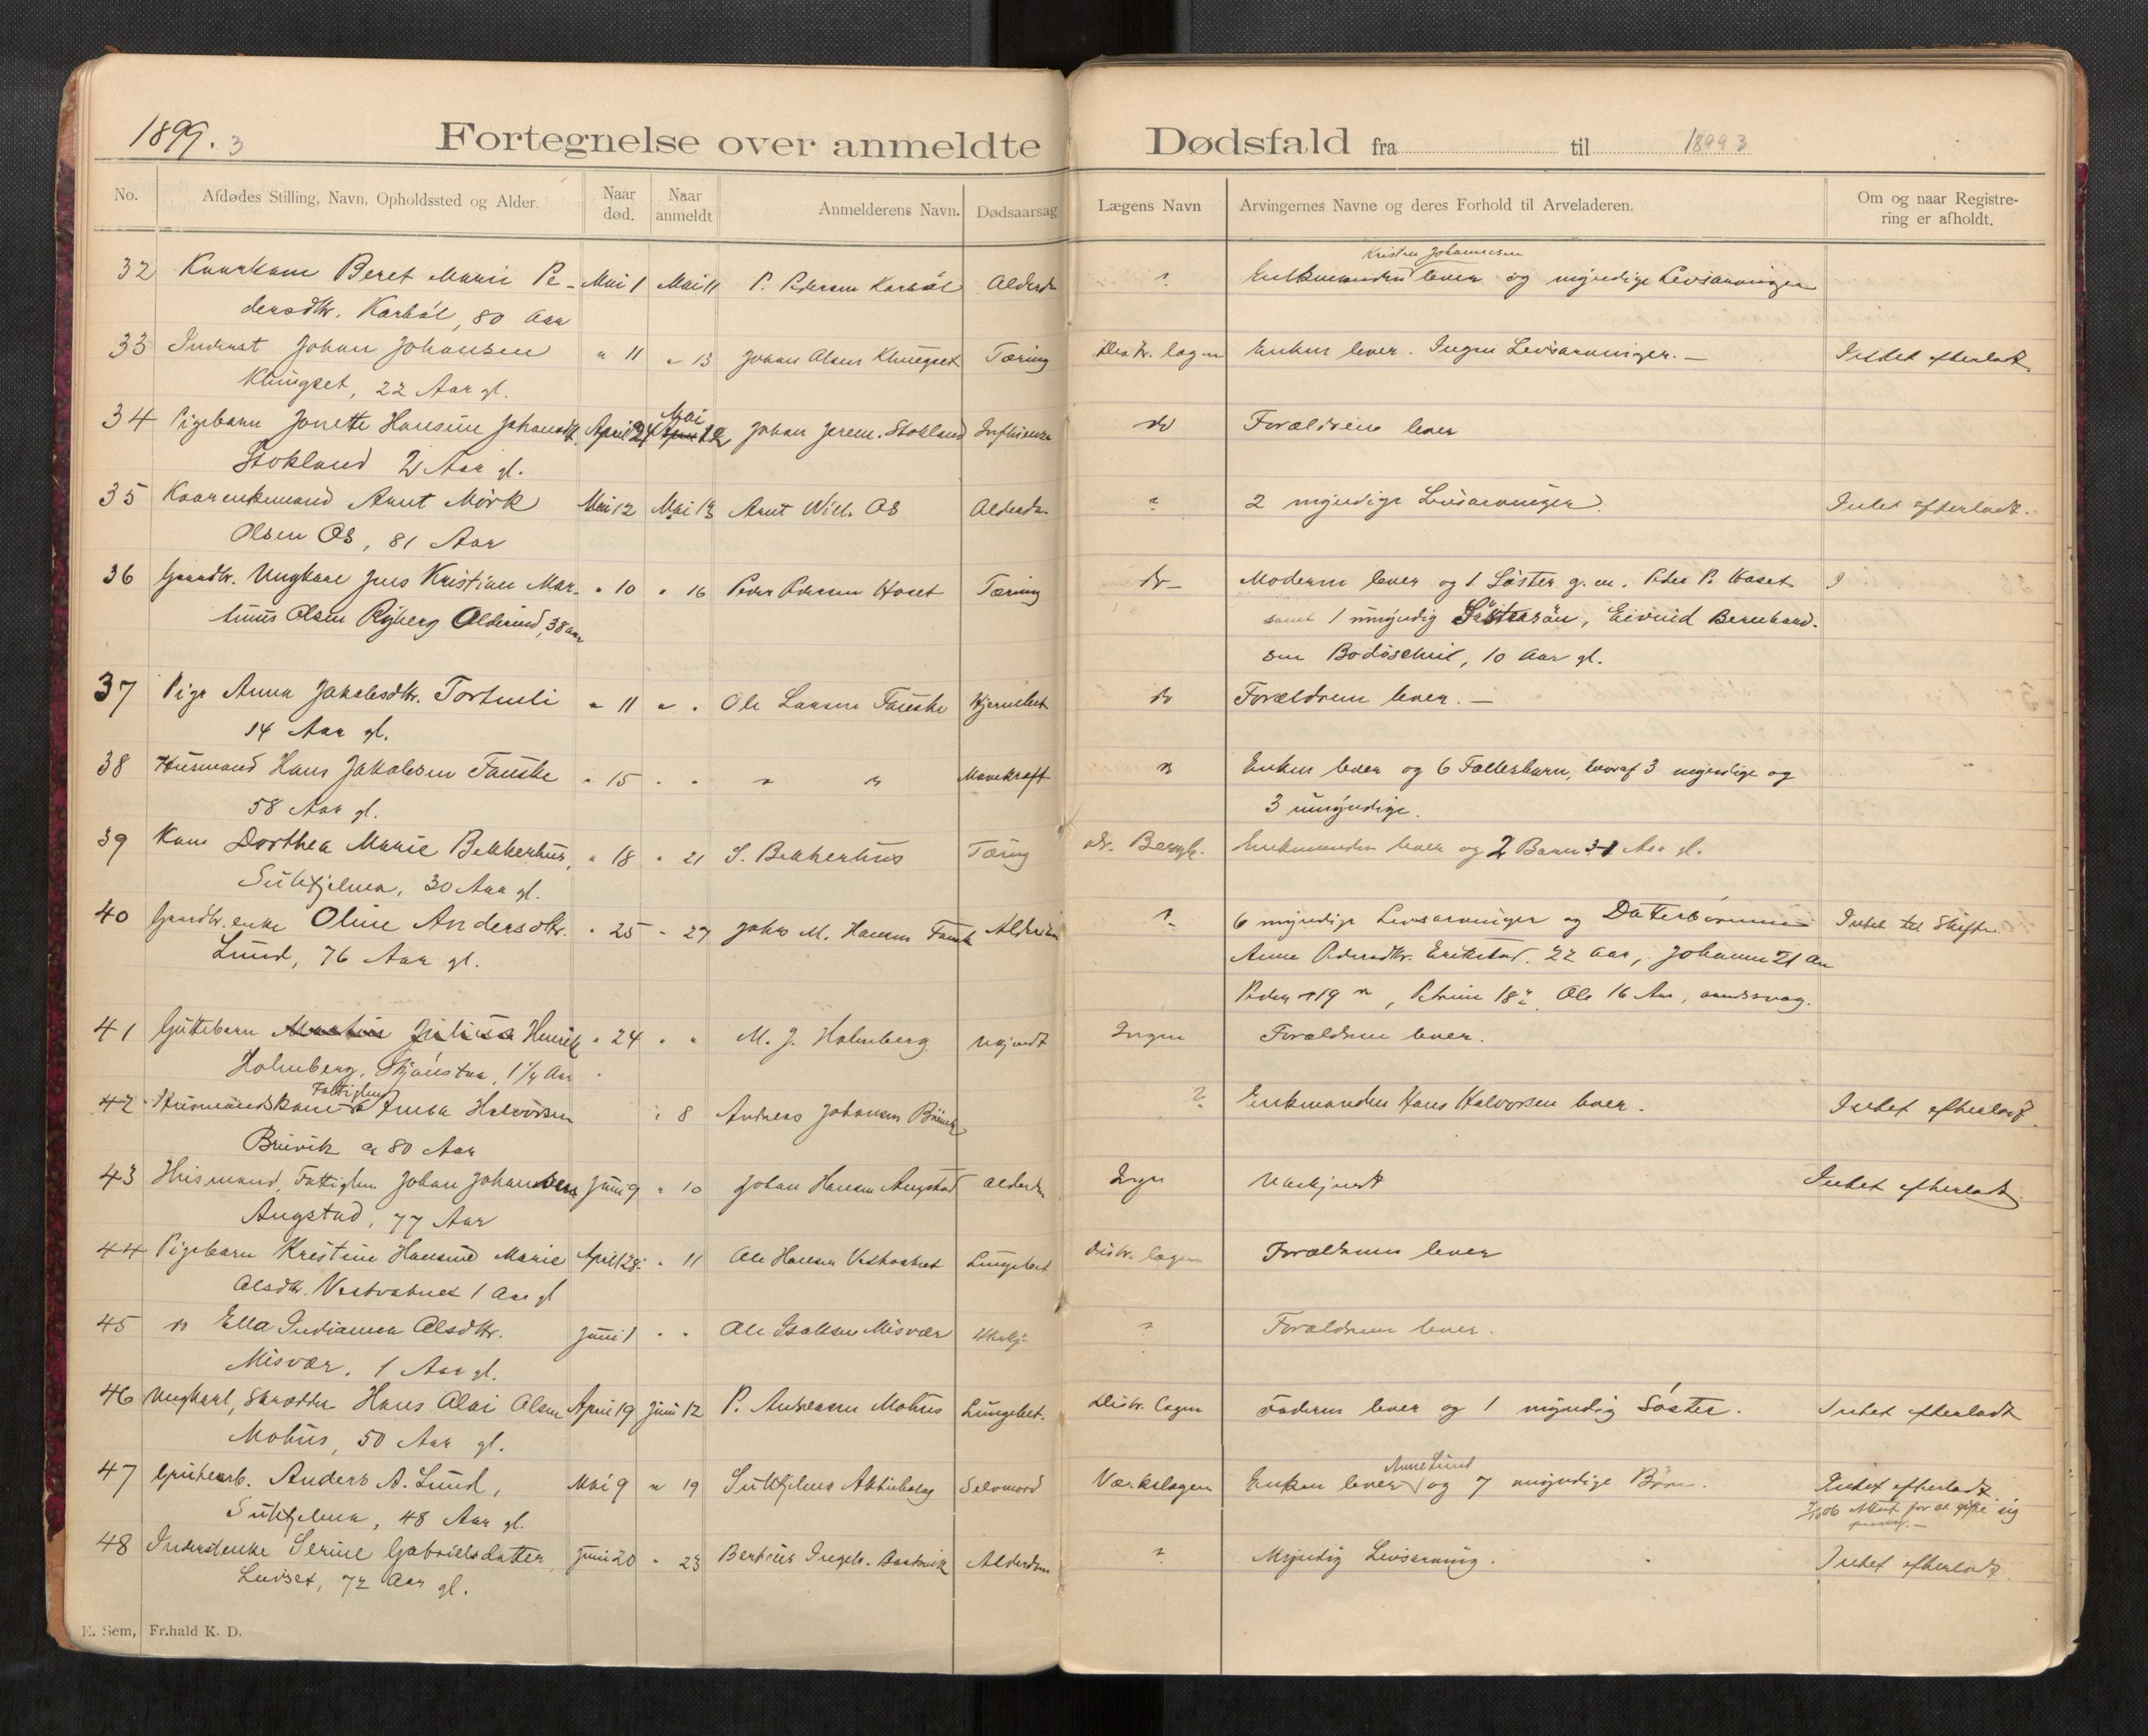 1899. 3
Fortegnelse over anmeldte Dødsfald fra til 1899 3
No. Afdødes Stilling, Navn, Opholdssted og Alder. Naar død. Naar anmeldt Anmelderens Navn. Dødsaarsag Lægens Navn Arvingernes Navne og deres Forhold til Arveladeren. Om og naar Registrering er afholdt.
Kristen Johannesen
32 Kaarkone Beret Marie Pe- Mai 1 Mai 11 P. Pedersen Karbøl Alderdom " Enkemanden lever og myndige Livsarvinger
dersdtr. Karbøl, 80 Aar
33 Inderst Johan Johansen " 11 " 13 Johan Olsen Klungset Tæring Distr. lægen Enken lever. Ingen Livsarvinger. — Intet efterladt.
Klungset, 22 Aar gl.
Mai
34 Pigebarn Jonette Hansine Johansdtr. April 24 12 Johan Jerem. Stokland Influenza do Forældrene lever
Stokland 2 Aar gl.
35 Kaarenkemand Arnt Mørk Mai 12 Mai 13 Arnt Will. Os Alderdom " 2 myndige Livsarvinger. Intet efterladt.
Olsen Os, 81 Aar
36 Gaardbr. Ungkarl Jens Kristian Mar- " 10 " 16 Peder Pedersen Hoset Tæring do Moderen lever og 1 Søster g. m. Peder P. Hoset
tinus Olsen Aldersund, 38 aar samt 1 umyndig Søstersøn, Eivind Bernhard-
sen 10 Aar gl.
37 Pige Anna Jakobsdtr. Tortenli " 11 " " Ole Larsen Fauske do Forældrene lever. —
14 Aar gl.
38 Husmand Hans Jakobsen Fauske " 15 " " " " Mavekræft " Enken lever og 6 Fællesbarn, hvoraf 3 myndige og
58 Aar gl. 3 umyndige.
39 Kone Dorthea Marie Bekkerhus, " 18 " 21 S. Bekkerhus Tæring Enkemanden lever og 2 Barn 3-1 Aar gl.
Sulitjelma, 30 Aar gl.
40 Gaardbr. enke Oline Andersdtr. " 25 " 27 Johs M. Hansen Fauske Alderdom " 6 myndige Livsarvinger og Datterbørnene Intet til Skifte.
Lund, 76 Aar gl. Anne Pedersdtr. Erikstad 22 aar, Johanne 21 Aar
Peder 19 ", Petrine 18 " Ole 16 Aar, aandssvag.
41 Guttebarn Julius Henrik " 24 " " M. J. Holmberg Ukjendt Ingen Forældrene lever.
Holmberg, Skjønstua, 1 ¼ Aar
Fattiglem
42 Husmandskone Halvorsen " 8 Andreas Johansen ? Enkmanden Hans Halvorsen lever. Intet efterladt.
Bruvik ca 80 Aar
43 Husmand, Fattiglem Johan Johansen Juni 9 " 10 Johan Hansen Angstad Alderdom Ingen Ubekjendt Intet efterladt.
Angstad, 77 Aar
44 Pigebarn Kristine Hansine Marie April 28 " 11 Ole Hansen Vestvatnet Lungebet. Distr. lægen Forældrene lever
Olsdtr. Vestvatnet 1 Aar gl
45 " Ella Indianna Olsdtr. Juni 1 " " Ole Isaksen Misvær Ubekj. " Forældrene lever.
Misvær, 1 Aar gl.
46 Ungkarl, Skrædder Hans Olai Olsen April 19 Juni 12 P. Andreasen Mohus Lungebet. Distr. lægen Faderen lever og 1 myndig Søster. Intet efterladt
Mohus, 50 Aar gl.
Anne Lund
47 Grubearb. Anders A. Lund, Mai 9 " 19 Sulitjelma Aktiebolag Selvmord Værkslægen Enken lever og 7 umyndige Børn. Intet efterladt.
Sulitjelma, 48 Aar gl. 06 Attest for at gifte sig
48 Inderstenke Serine Gabrielsdatter, Juni 20 " 23 Bertius Ingebr. Alderdom " Myndig Livsarving. Intet efterladt.
Leivset, 72 Aar gl.
E. Sem, Fr.hald K. D.